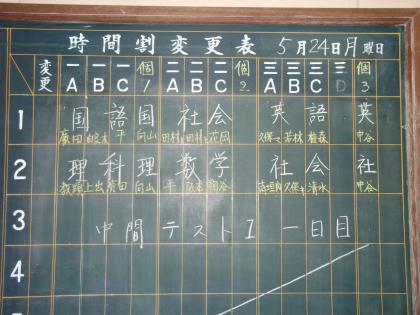 時間割変更表 5月24日月曜日
変更 一A 一B 一C 個1 二A 二B 二C 個2 三A 三B 三C 三D 個3
1 国語 国 社会 英語 英
廣田 平 向山 田村 田村 花岡 若林 植森 中谷
2 理科 理 数学 社会 社
教頭 上出 向山 平 清水 中谷
3 中間テスト1 一日目
4